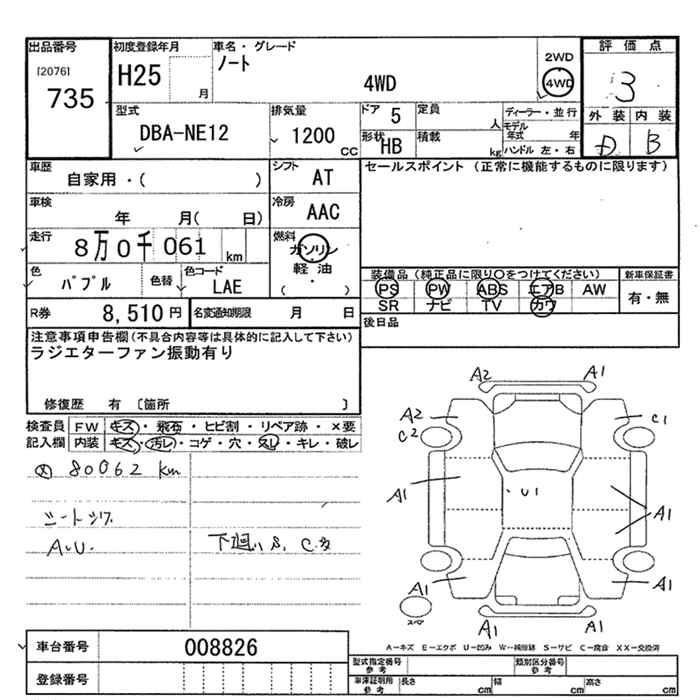 出品番号 初度登録年月 車名・グレード 2WD 評価点
[2076] H25 ノート 4WD 4WD 3
735 月
型式 排気量 ドア 5 定員 人 ディーラー・並行 外装 内装
DBA-NE12 1200 CC 形状 HB 積載 kg モデル年式 年 B
ハンドル 左・右
車歴 シフト AT セールスポイント (正常に機能するものに限ります)
自家用・( )
車検 冷房 AAC
年 月( 日)
走行 8万0千061 km 燃料 ガソリン
軽油
・
( )
色 パプル 色替 色コード LAE
装備品(純正品に限り○をつけてください) 新車保証書
PS PW ABS エアB AW 有・無
SR ナビ TV カワ
R券 8,510円 名変通知期限 月 日 後日品
注意事項申告欄(不具合内容等は具体的に記入して下さい)
ラジエターファン振動有り
修復歴 有 〔箇所 〕
検査員 FW キズ・飛石・ヒビ割・リペア跡・×要
記入欄 内装 キズ・汚レ・コゲ・穴・スレ・キレ・破レ
80062 km
シートシワ
A.U. 下廻り S, C.多
A2 A1
A2 C1
C2
A1 U1 A1
A1 A1
スペア
A1 A1
A-キズ E-エクボ U-凹み W-補修跡 S-サビ C-腐食 XX-交換済
車台番号 008826
登録番号
型式指定番号 参考 類別区分番号 参考
車庫証明用 参考 長さ cm 幅 cm 高さ cm